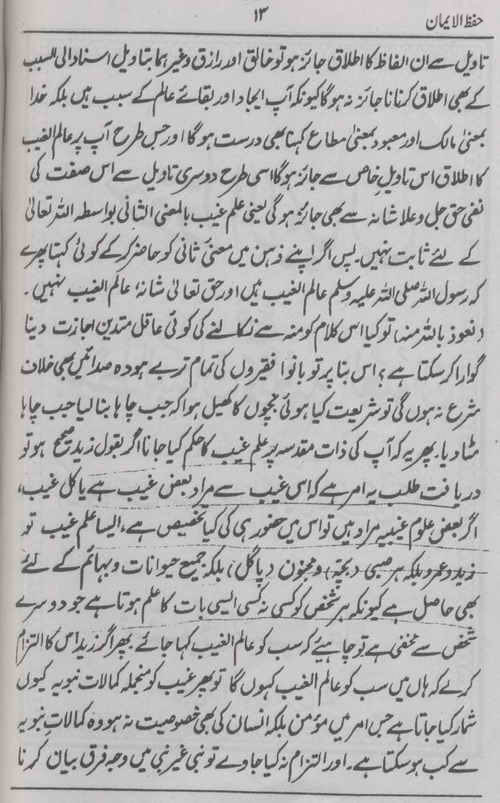 حفظ الایمان
۱۳
تاویل سے ان الفاظ کا اطلاق جائز ہو تو خالق اور رازق وغیرہما بتاویل اسناد الی السبب
کے بھی اطلاق کرنا ناجائز نہ ہو گا کیونکہ آپ ایجاد اور بقائے عالم کے سبب ہیں بلکہ خدا
بمعنی مالک اور معبود بمعنی مطاع کہنا بھی درست ہو گا اور جس طرح آپ پر عالم الغیب
کا اطلاق اس تاویل خاص سے جائز ہو گا اسی طرح دوسری تاویل سے اس صفت کی
نفی حق جل وعلا شانہ سے بھی جائز ہو گی یعنی علم غیب بالمعنی الثانی بواسطہ اللہ تعالیٰ
کے لئے ثابت نہیں۔ پس اگر اپنے ذہن میں معنی ثانی کو حاضر کر کے کوئی کہتا پھرے
کہ رسول اللہ صلی اللہ علیہ وسلم عالم الغیب ہیں اور حق تعالیٰ شانہ، عالم الغیب نہیں۔
(نعوذ باللہ منہا) تو کیا اس کلام کو منہ سے نکالنے کی کوئی عاقل متدین اجازت دینا
گوارا کر سکتا ہے؟ اس بنا پر تو بانوا فقیروں کی تمام تر بے ہودہ صدائیں بھی خلاف
شرع نہ ہوں گی تو شریعت کیا ہوئی بچوں کا کھیل ہوا کہ جب چاہا بنا لیا جب چاہا
مٹا دیا۔ پھر یہ کہ آپ کی ذات مقدسہ پر علم غیب کا حکم کیا جانا اگر بقول زید صحیح ہو تو
دریافت طلب یہ امر ہے کہ اس غیب سے مراد بعض غیب ہے یا کل غیب،
اگر بعض علوم غیبیہ مراد ہیں تو اس میں حضور ہی کی کیا تخصیص ہے، ایسا علم غیب تو
زید و عمرو بلکہ ہر صبی (بچہ) و مجنون (پاگل) بلکہ جمیع حیوانات و بہائم کے لئے
بھی حاصل ہے کیونکہ ہر شخص کو کسی نہ کسی ایسی بات کا علم ہوتا ہے جو دوسرے
شخص سے مخفی ہے تو چاہئے کہ سب کو عالم الغیب کہا جائے پھر اگر زید اس کا التزام
کرلے کہ ہاں میں سب کو عالم الغیب کہوں گا تو پھر غیب کو منجملہ کمالات نبویہ کیوں
شمار کیا جاتا ہے جس امر میں مومن بلکہ انسان کی بھی خصوصیت نہ ہو وہ کمالات نبویہ
سے کب ہو سکتا ہے۔ اور التزام نہ کیا جاوے تو نبی غیر نبی میں وجہ فرق بیان کرنا